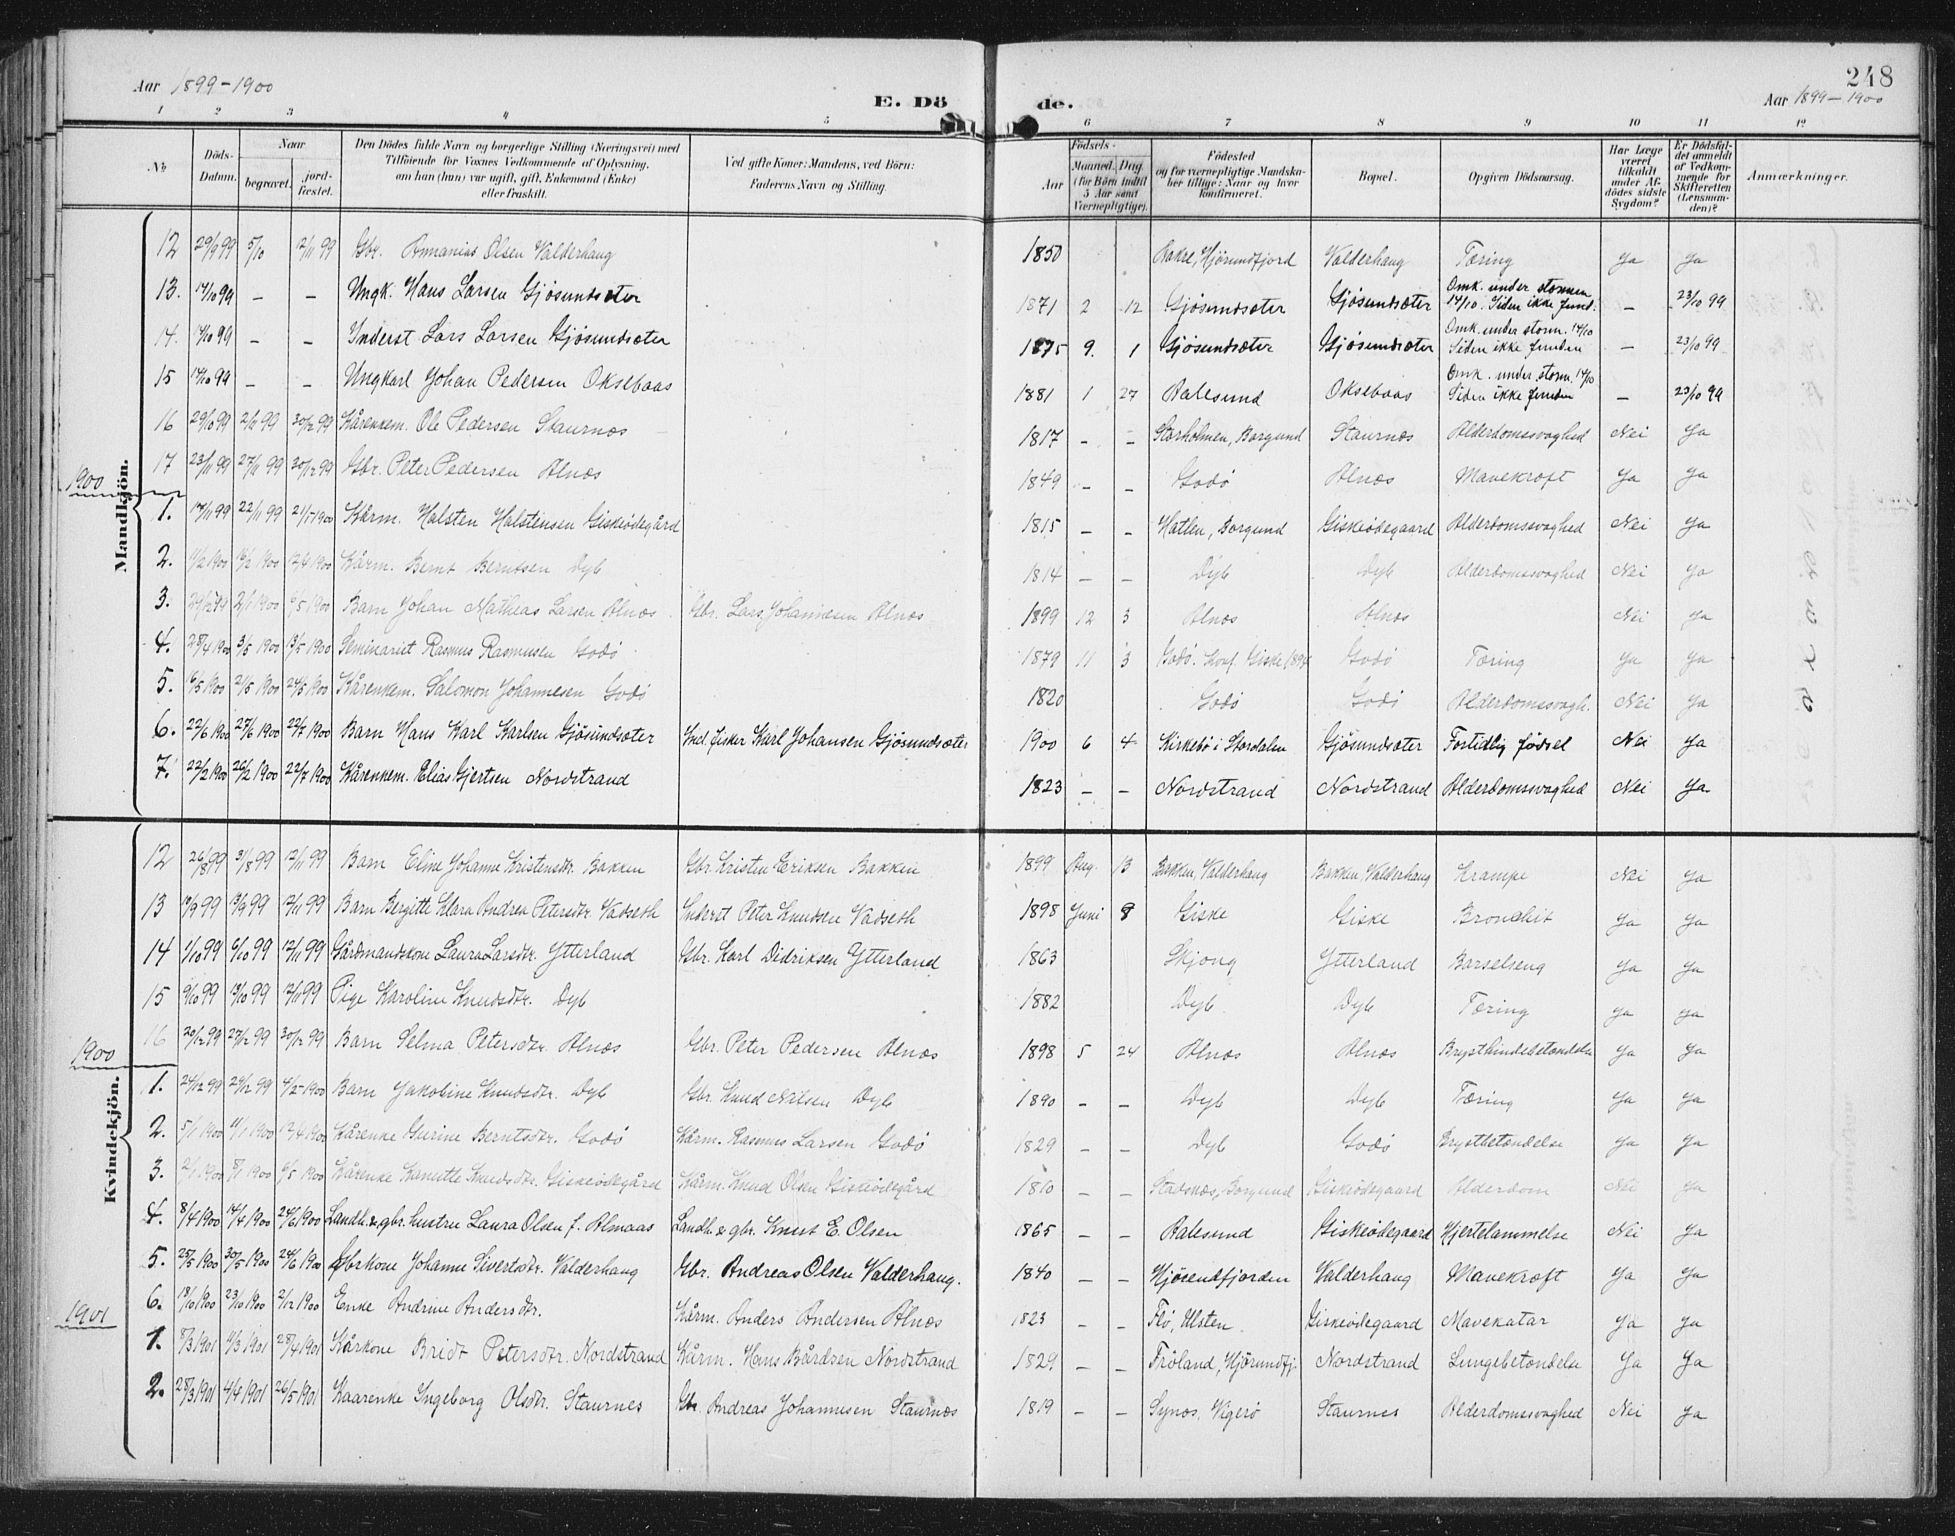 Aar 1899-1900
E. Dö de.
248
Aar 1899-1900
1 2 3 4 5 6 7 8 9 10 11 12
No.
Döds-Datum.
Naar
begravet.
jord-fæstet.
Den Dödes fulde Navn og borgerlige Stilling (Næringsvei) med
Tilföiende for Voxnes Vedkommende af Oplysning,
om han (hun) var ugift, gift, Enkemand (Enke)
eller fraskilt.
Ved gifte Koner: Mandens, ved Börn:
Faderens Navn og Stilling.
Födsels-
Aar
Maaned. Dag.
(for Börn indtil
5 Aar samt
Værnepligtige).
Födested
og for værnepligtige Mandska-
ber tillige: Naar og hvor
konfirmeret.
Bopæl.
Opgiven Dödsaarsag.
Har Læge
været
tilkaldt
under Af-
dödes sidste
Sygdom?
Er Dödsfal-
det anmeldt
af Vedkom-
mende for
Skifteretten
(Lensman-
den)?
Anmærkninger.
Mandkjön.
12 29/9 99 5/10 12/11 99 Gbr. Annanias Olsen Valderhaug 1850 Bakke, Hjörundfjord Valderhaug Tæring Ja Ja
13. 14/10 99 - - Ungk. Hans Larsen Gjösundsæter 1871 2 12 Gjösundsæter Gjösundsæter Omk. under stormen 14/10. Siden ikke fund. - 23/10 99
14. 14/10 99 - - Inderst Lars Larsen Gjösundsæter 1875 9. 1 Gjösundsæter Gjösundsæter Omk. under storm. 14/10 Siden ikke funden - 23/10 99
15 14/10 99 - - Ungkarl Johan Pedersen Oksebaas 1881 1 27 Aalesund Oksebaas Omk. under storm. 14/10 Siden ikke funden - 23/10 99
16 29/10 99 2/11 99 30/12 99 Kårenkem. Ole Pedersen Staurnes 1817 - - Storholmen, Borgund Staurnæs Alderdomssvaghed Nei Ja
17 23/11 99 27/11 99 30/12 99 Gbr. Peter Pedersen Alnæs 1849 - - Godø Alnæs Mavekræft Ja Ja
1900
1. 17/11 99 22/11 99 21/1 1900 Kårm. Halsten Halstensen Giskeødegård 1815 - - Hatlen, Borgund Giskeødegaard Alderdomssvaghed Nei Ja
2. 11/2 1900 16/2 1900 12/4 1900 Kårm. Bernt Berntsen Dyb 1814 - - Dyb Dyb Alderdomssvaghed Nei Ja
3. 29/12 99 2/1 1900 6/5 1900 Barn Johan Mathias Larsen Alnæs Gbr. Lars Johannesen Alnæs 1899 12 3 Alnæs Alnæs Nei Ja
4. 28/4 1900 3/5 1900 13/5 1900 Seminarist Rasmus Rasmusen Godø 1879 11 3 Godø. Conf. Giske Godø Tæring Ja Ja
5. 6/5 1900 21/5 1900 24/5 1900 Kårenkem. Salomon Johannesen Godø 1820 Godø Godø Alderdomssvagh. Nei Ja
6. 22/6 1900 27/6 1900 22/7 1900 Barn Hans Karl Karlsen Gjösundsæter Ind. fisker Karl Johansen Gjösundsæter 1900 6 4 Kirkebö i Stordalen Gjösundsæter Fortidlig födsel Nei Ja
7. 22/2 1900 26/2 1900 22/7 1900 Kårenkem. Elias Gjertsen Nordstrand 1823 - - Nordstrand Nordstrand Alderdomssvaghed Nei Ja
Kvindekjön.
12 26/8 99 31/8 99 12/11 99 Barn Eline Johanne Kristensdtr. Bakken Gbr. Kristen Eriksen Bakken 1899 Aug. 13 Bakken, Valderhaug Bakken, Valderhaug Krampe Nei Ja
13 10/9 99 13/9 99 12/11 99 Barn Bergitte Klara Andrea Petersdtr. Vadseth Inderst Peter Knudsen Vadseth 1898 Juni 8 Giske Giske Bronchit Ja Ja
14 1/10 99 6/10 99 12/11 99 Gårdmandskone Laura Larsdtr. Ytterland Gbr. Karl Didriksen Ytterland 1863 Skjong Ytterland Barselseng Ja Ja
15 9/10 99 13/10 99 12/11 99 Pige Karoline Knudsdtr. Dyb 1882 Dyb Dyb Tæring Ja Ja
16 20/12 99 27/12 99 30/12 99 Barn Selma Petersdtr. Alnæs Gbr. Peter Pedersen Alnæs 1898 5 24 Alnæs Alnæs Brysthindebetændelse Ja Ja
1900
1. 24/12 99 29/12 99 4/2 1900 Barn Jakobine Knudsdtr. Dyb Gbr. Knud Nilsen Dyb 1890 - - Dyb Dyb Tæring Ja Ja
2. 5/1 1900 11/1 1900 12/4 1900 Kårenke Gurine Berntsdtr. Godø Kårm. Rasmus Larsen Godø 1829 - - Dyb Godø Brystbetændelse Ja Ja
3. 2/1 1900 8/1 1900 6/5 1900 Kårenke Knudsdtr. Giskeødegård Kårm. Knud Olsen Giskeødegård 1810 - - Stadsnæs, Borgund Giskeødegaard Alderdom Nei Ja
4. 8/4 1900 14/4 1900 24/6 1900 Landh. & gbr. hustru Laura Olsen f. Almaas Landh. & gbr. Knut E. Olsen 1865 - - Aalesund Giskeødegaard Hjertelammelse Nei Ja
5. 25/5 1900 30/5 1900 24/6 1900 Gbrkone Johanne Sivertsdtr. Valderhaug Gbr. Andreas Olsen Valderhaug. 1840 - - Hjörundfjorden Valderhaug Mavekræft Ja Ja
6. 18/10 1900 23/10 1900 2/12 1900 Enke Andrine Andersdtr. Kårm. Anders Andersen Alnæs 1823 - - Flø, Ulsten. Giskeødegaard Mavekatar Ja Ja
1901
1. 8/3 1901 11/3 1901 28/4 1901 Kårkone Bridt Petersdtr. Nordstrand Kårm. Hans Bårdsen Nordstrand 1829 - - Fröland, Hjörundfj. Nordstrand Lungebetændelse Ja Ja
2. 28/3 1901 4/4 1901 26/5 1901 Kaarenke Ingeborg Olsdtr. Staurnes Gbr. Andreas Johannesen Staurnæs 1819 - - Synes, Vigerø Staurnes Alderdomssvaghed Nei Ja